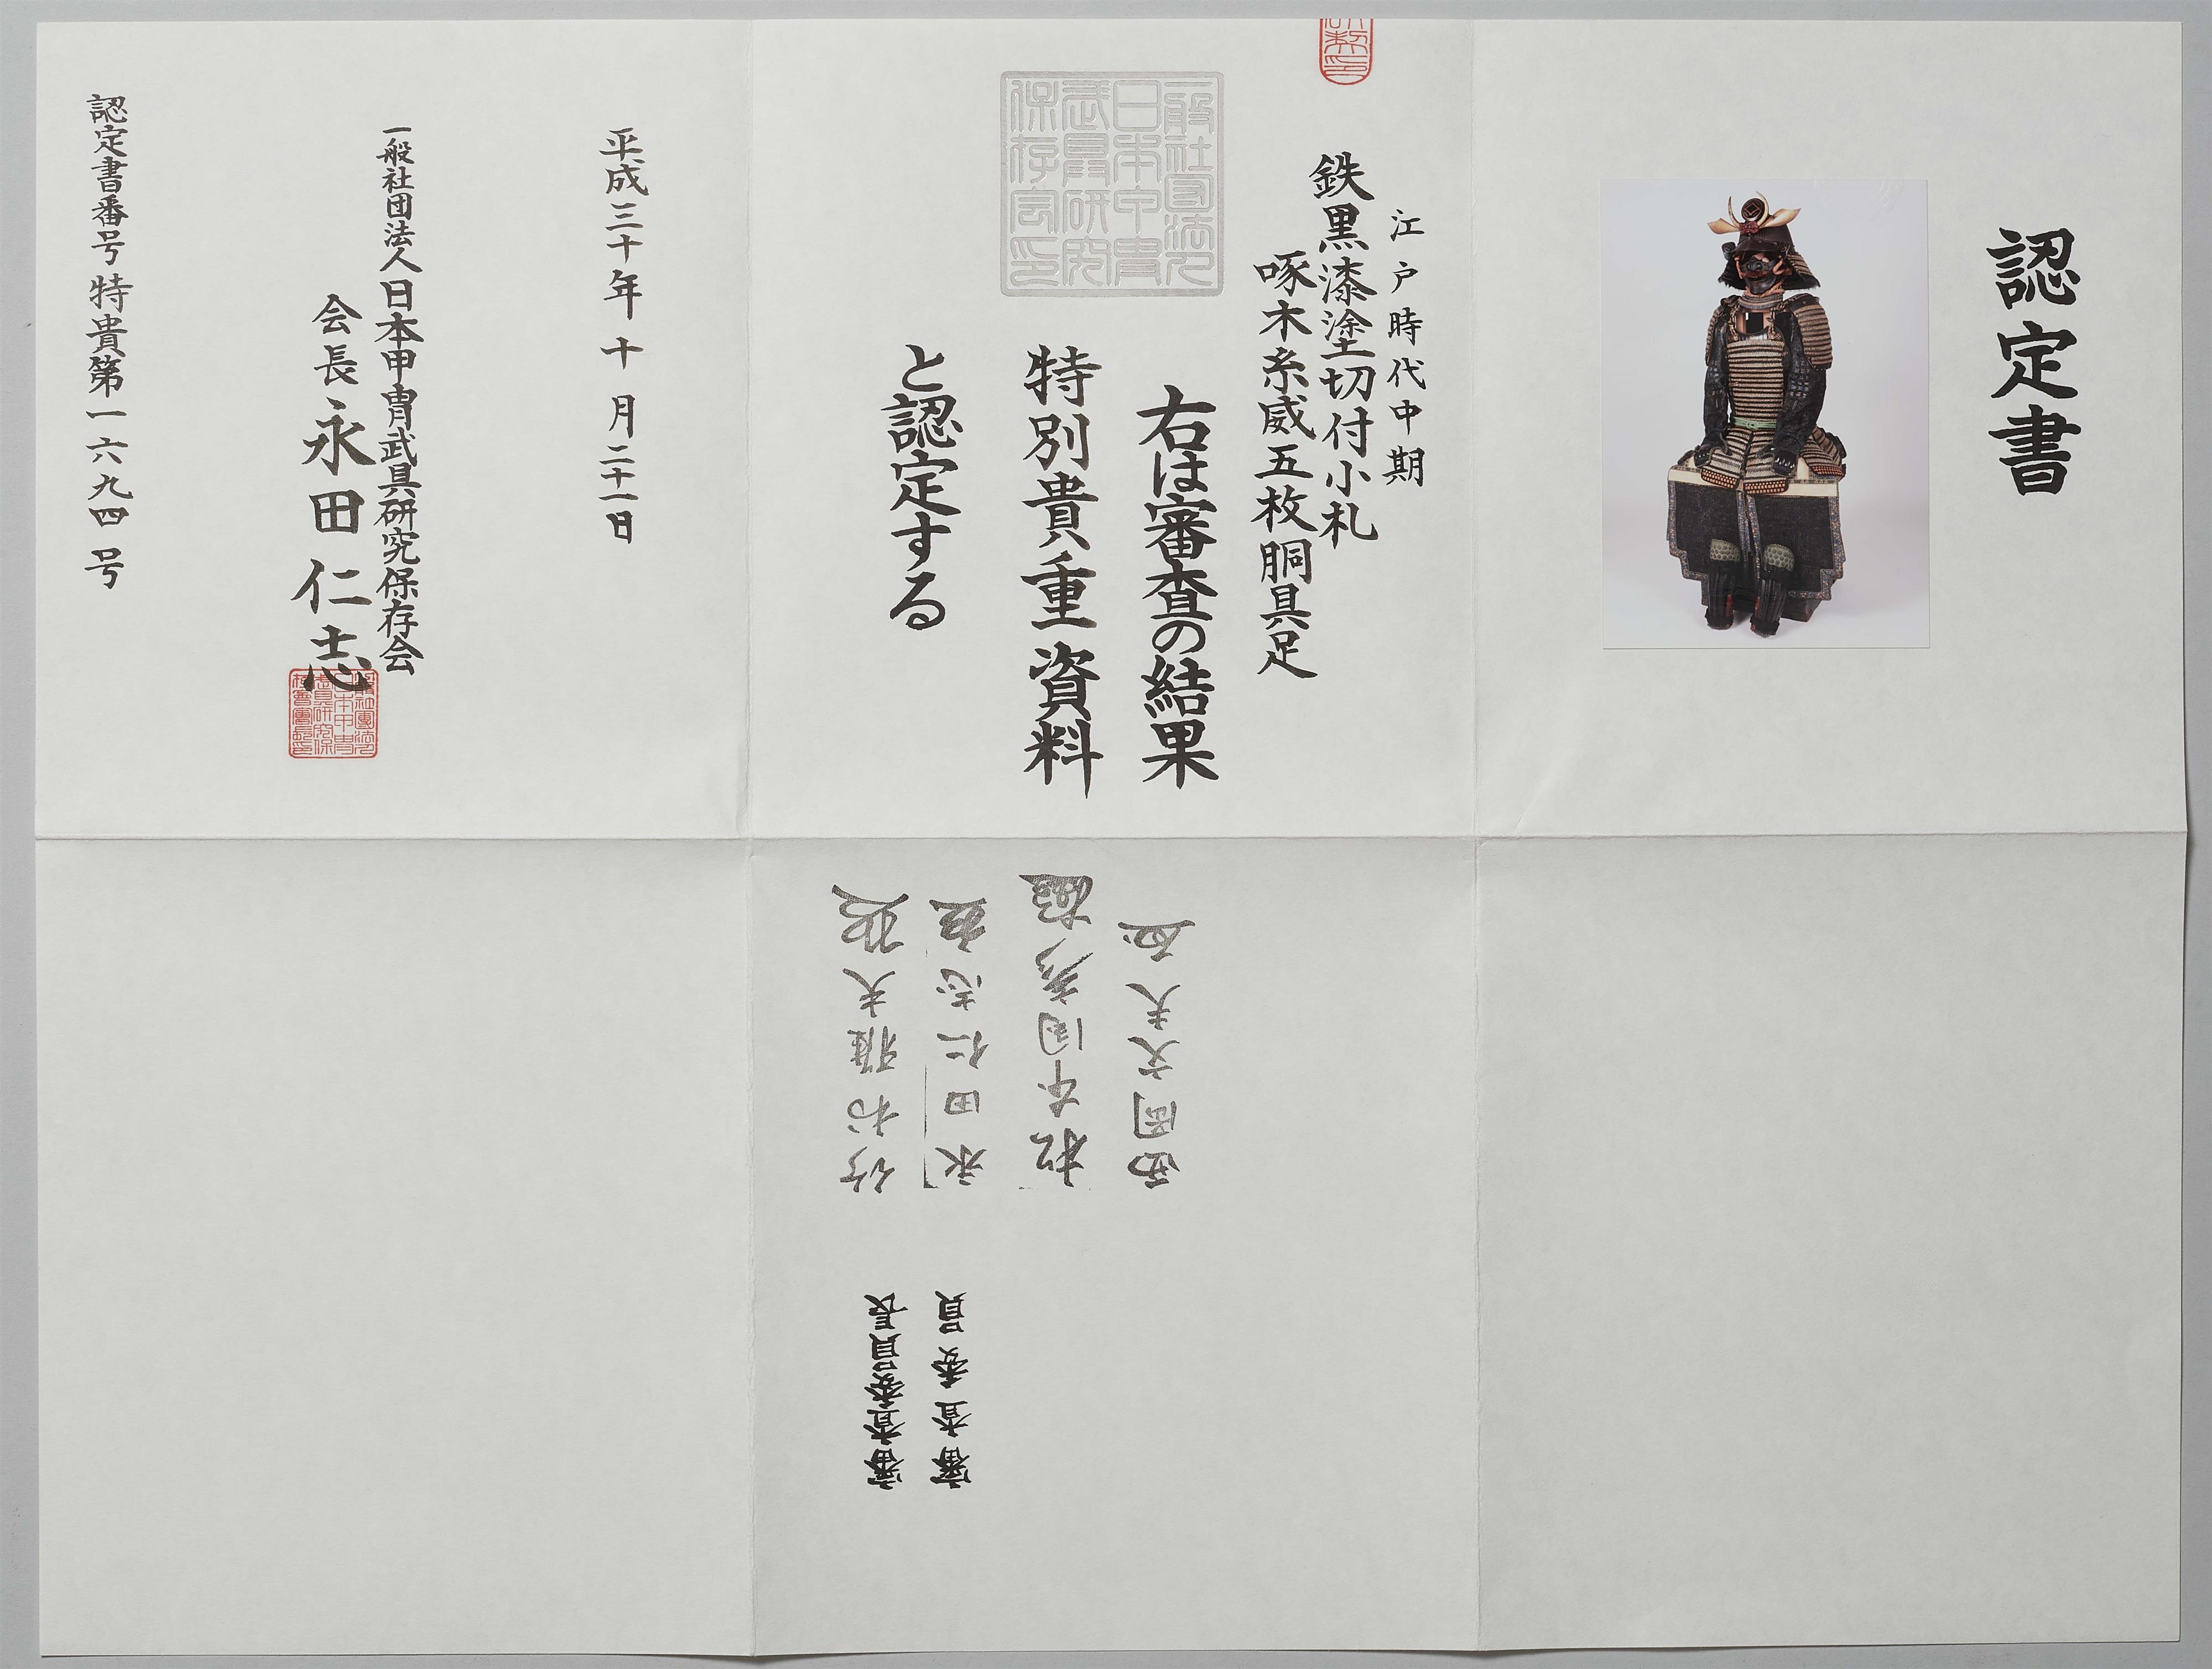 認定書
江戸時代中期
鉄黒漆塗切付小札
啄木糸威五枚胴具足
右は審査の結果
特別貴重資料
と認定する
一般社団法人
日本甲冑
武具研究
保存会印
平成三十年十月二十一日
一般社団法人日本甲冑武具研究保存会
会長永田仁志
認定書番号特貴第一六九四号
審査委員長
竹村雅夫
審査委員
永田仁志
西岡文夫